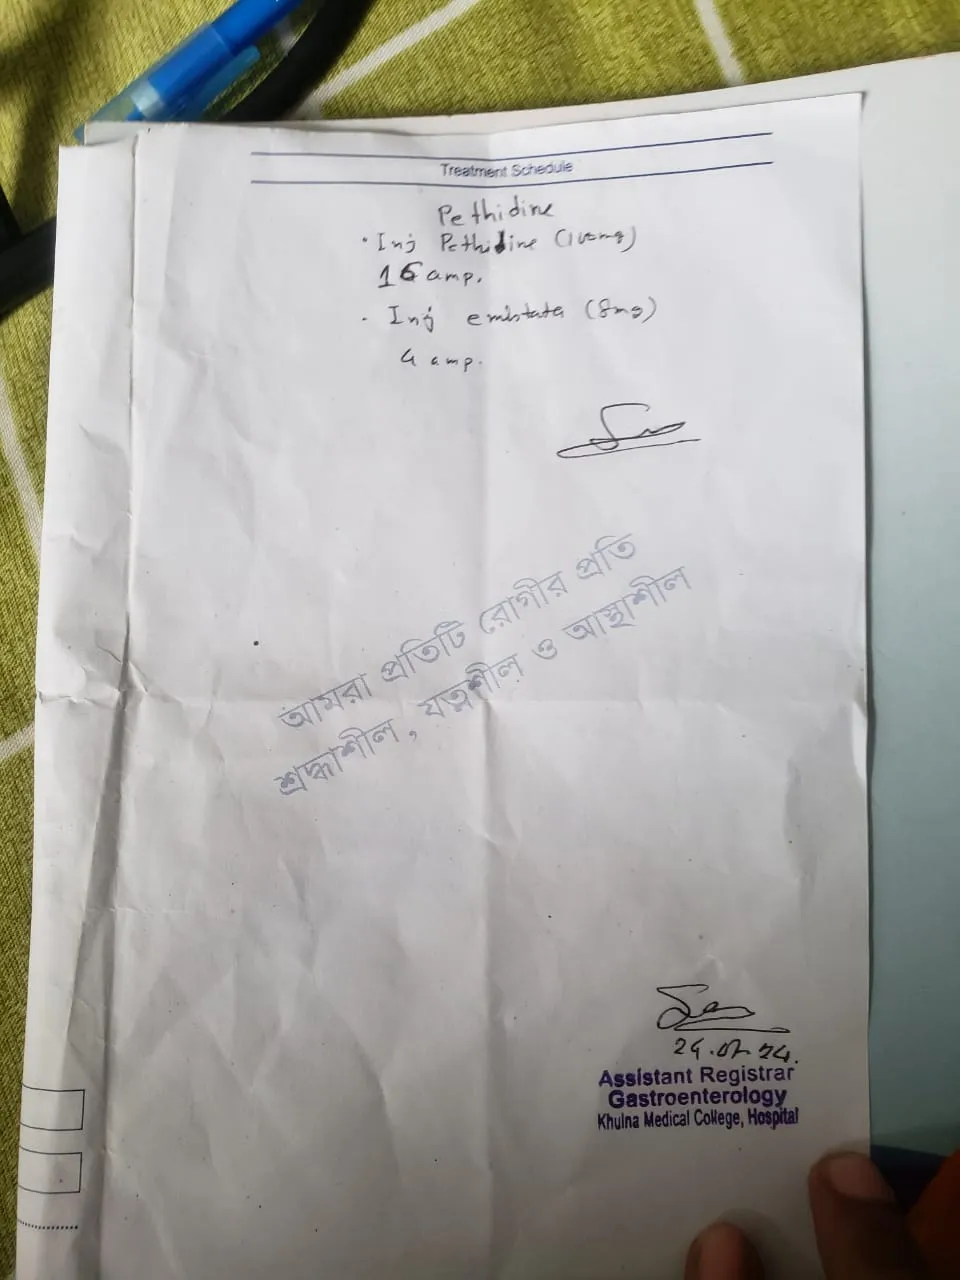 Treatment Schedule
Pethidine
• Inj Pethidine (100mg)
16 amp.
• Inj emistata (8mg)
4 amp.
আমরা প্রতিটি রোগীর প্রতি
শ্রদ্ধাশীল, যত্নশীল ও আস্থাশীল
Assistant Registrar
Gastroenterology
Khulna Medical College, Hospital